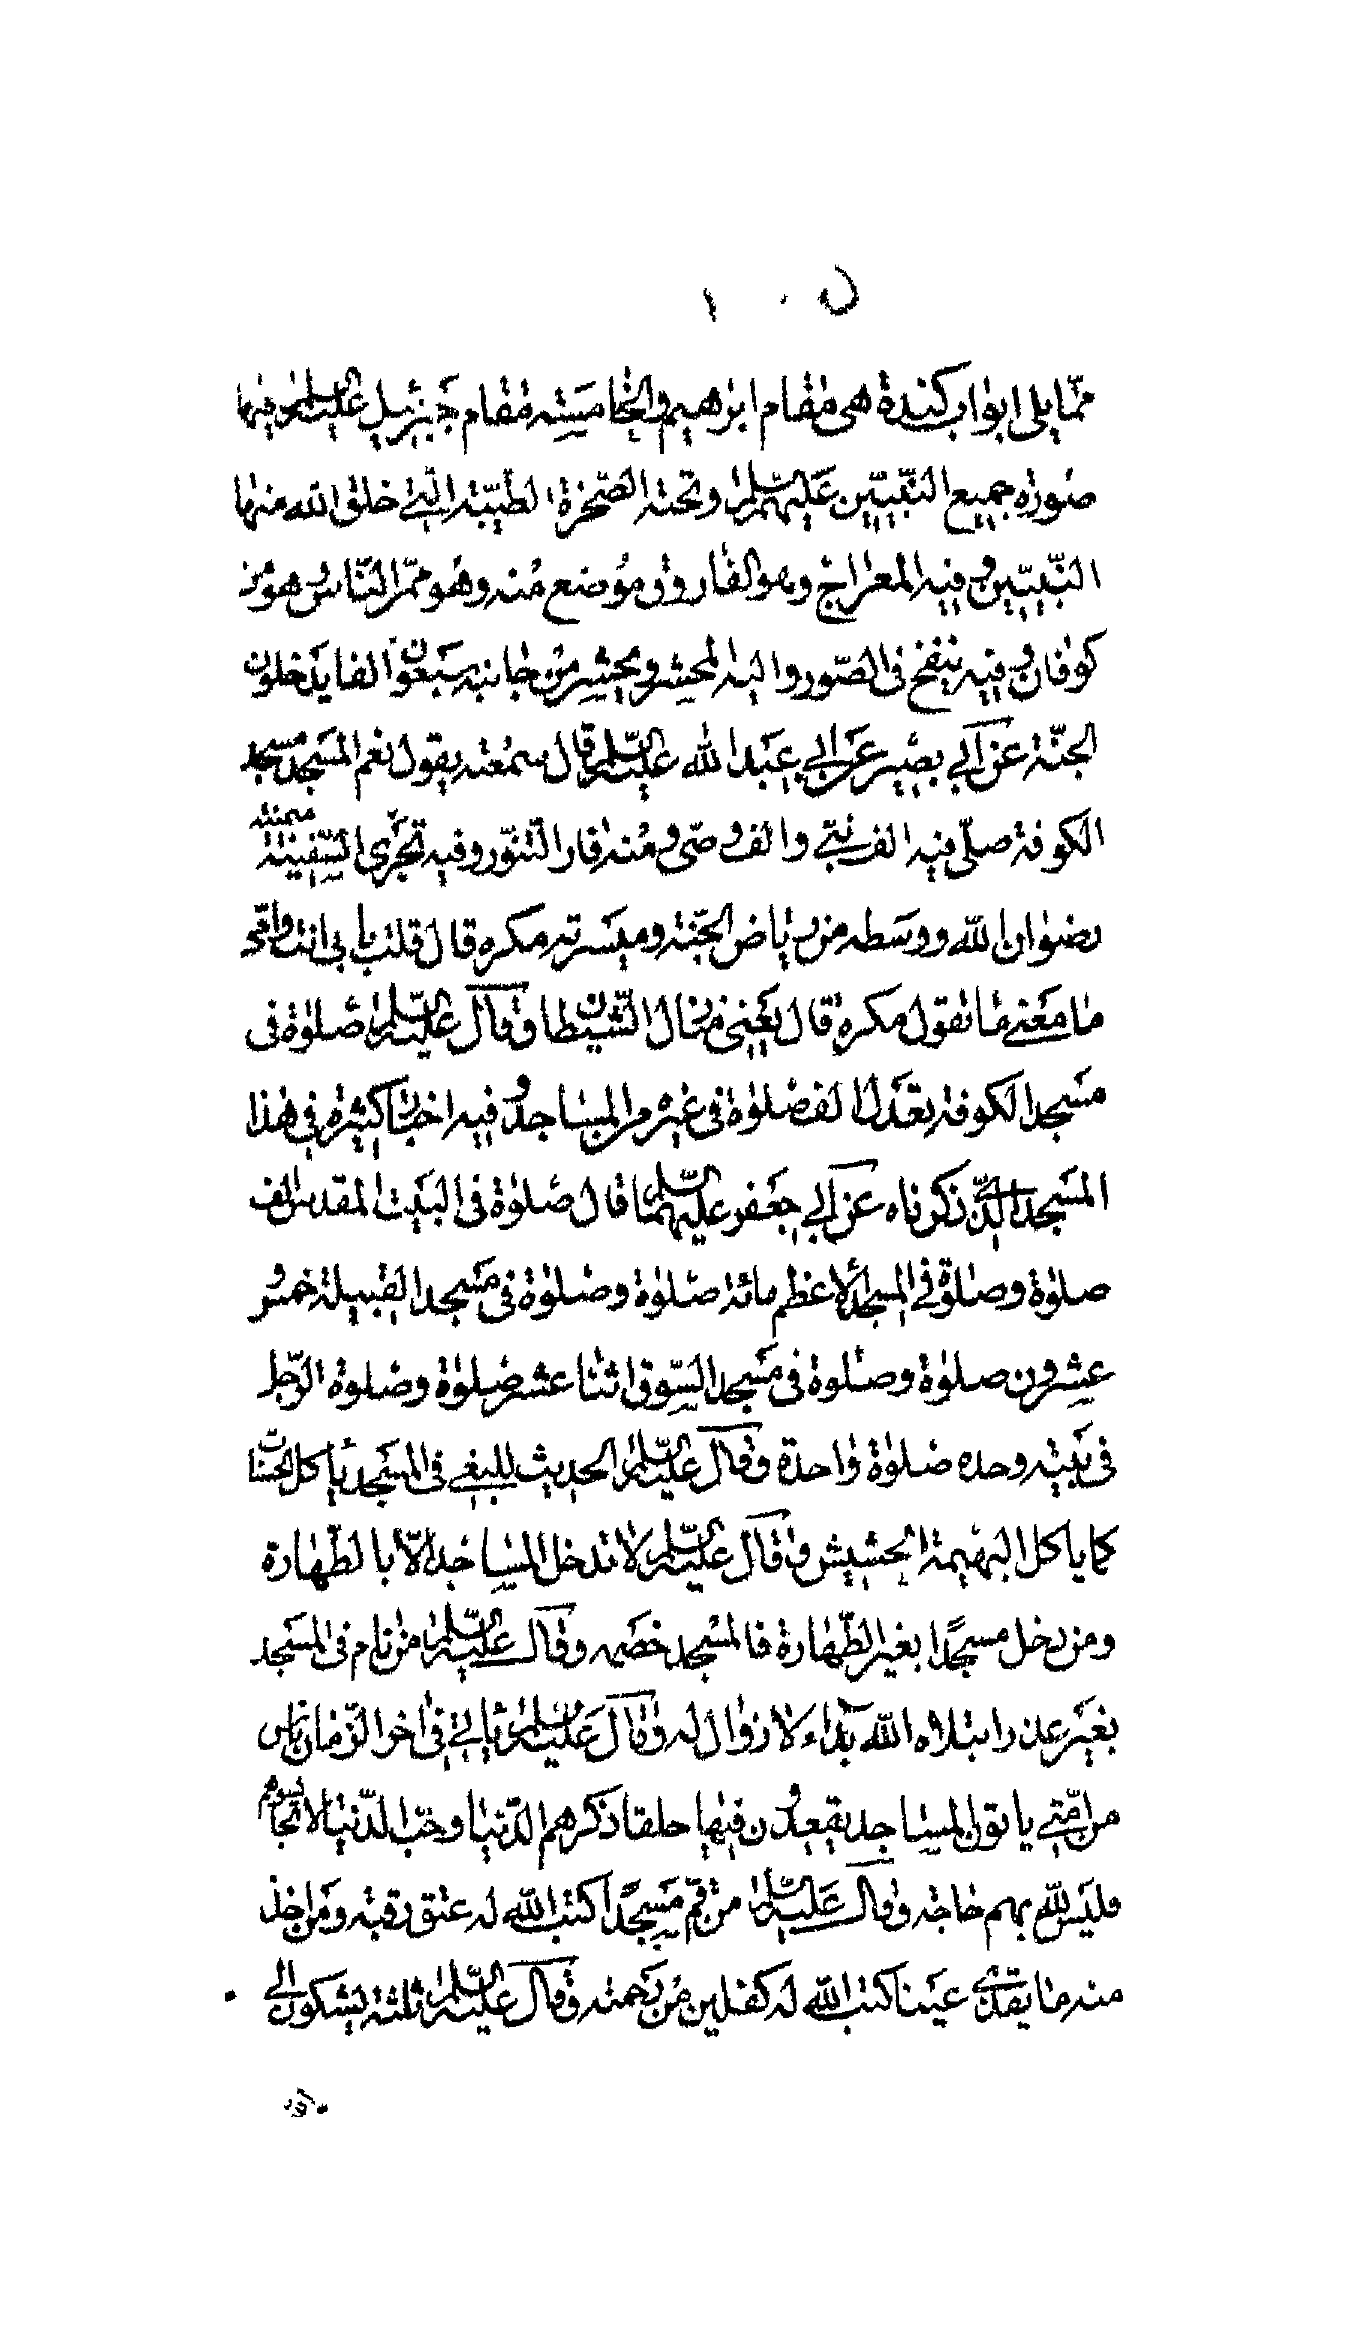 مما يلى ابواب كندة هى مقام ابرهيم والخامسته مقام جبرئيل عليه السلم فيها
صورة جميع النبيين عليهم السلم وتحته الصخرة الطيبة التى خلق الله منها
النبيين وفيه المعراج وهو الفاروق موضع منه وهو ممر الناس وهو من
كوفان وفيه ينفخ فى الصور واليه المحشر ويحشر من جانبه سبعون الفا يدخلون
الجنة عن ابى بصير عن ابى عبد الله عليه السلم قال سمعته يقول نعم المسجد مسجد
الكوفة صلى فيه الف نبى والف وصى ومنه فار التنور وفيه تجرى السفينة ميمنته
رضوان الله ووسطه من رياض الجنة وميسرته مكره قال قلت بابى انت وامى
ما معنى ما تقول مكره قال يعنى منازل الشيطان وقال عليه السلم صلوة فى
مسجد الكوفة يعدل الف صلوة فى غيره من المساجد وفيه اخبار كثيرة فى هذا
المسجد الذى ذكرناه عن ابى جعفر عليهما السلم قال صلوة فى البيت المقدس الف
صلوة وصلوة فى المسجد الاعظم مائة صلوة وصلوة فى مسجد القبيلة خمس و
عشرون صلوة وصلوة فى مسجد السوق اثنا عشر صلوة وصلوة الرجل
فى بيته وحده صلوة واحدة وقال عليه السلم الحديث للبغى فى المسجد ياكل الحسنات
كما ياكل البهيمة الحشيش وقال عليه السلم لا تدخل المساجد الا بالطهارة
ومن دخل مسجدا بغير الطهارة فالمسجد خصمه وقال عليه السلم من نام فى المسجد
بغير عذر ابتلاه الله بداء لا زوال له وقال عليه السلم ياتى فى اخر الزمان ناس
من امتى ياتون المساجد يقعدون فيها حلقا ذكرهم الدنيا وحب الدنيا لا تجالسوهم
فليس لله بهم حاجة وقال عليه السلم من قم مسجدا كتب الله له عتق رقبة ومن اخذ
منه ما يقذى عينا كتب الله له كفلين من رحمته وقال عليه السلم ثلثة يشكون الى